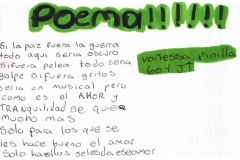 Poema!!!!!!
Si la paz fuera la guerra
todo aqui seria oscuro
si fuera pelea todo seria
golpe si fuera gritos
seria un musical pero
como es el AMOR y
TRANQUILIDAD se quiere
mucho mas
Solo para los que se
les hace bueno el amor
Solo ha ellos se les da deseamos
vanessa Pinilla